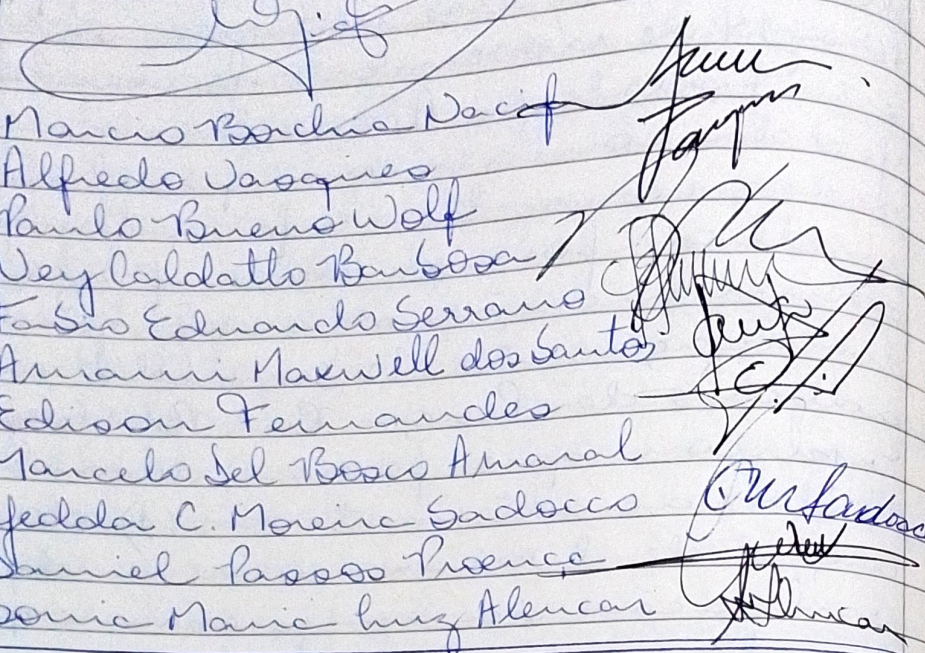 Marcio Borchia Nacif
Alfredo Vasques
Paulo Bueno Wolf
Ney Caldatto Barbosa
Fabio Eduardo Serrano
Amauri Maxwell dos Santos
Edison Fernandes
Marcelo Del Bosco Amaral
Jedda C. Moreira Sadocco
Daniel Passos Proença
Sonia Maria Luz Alencar